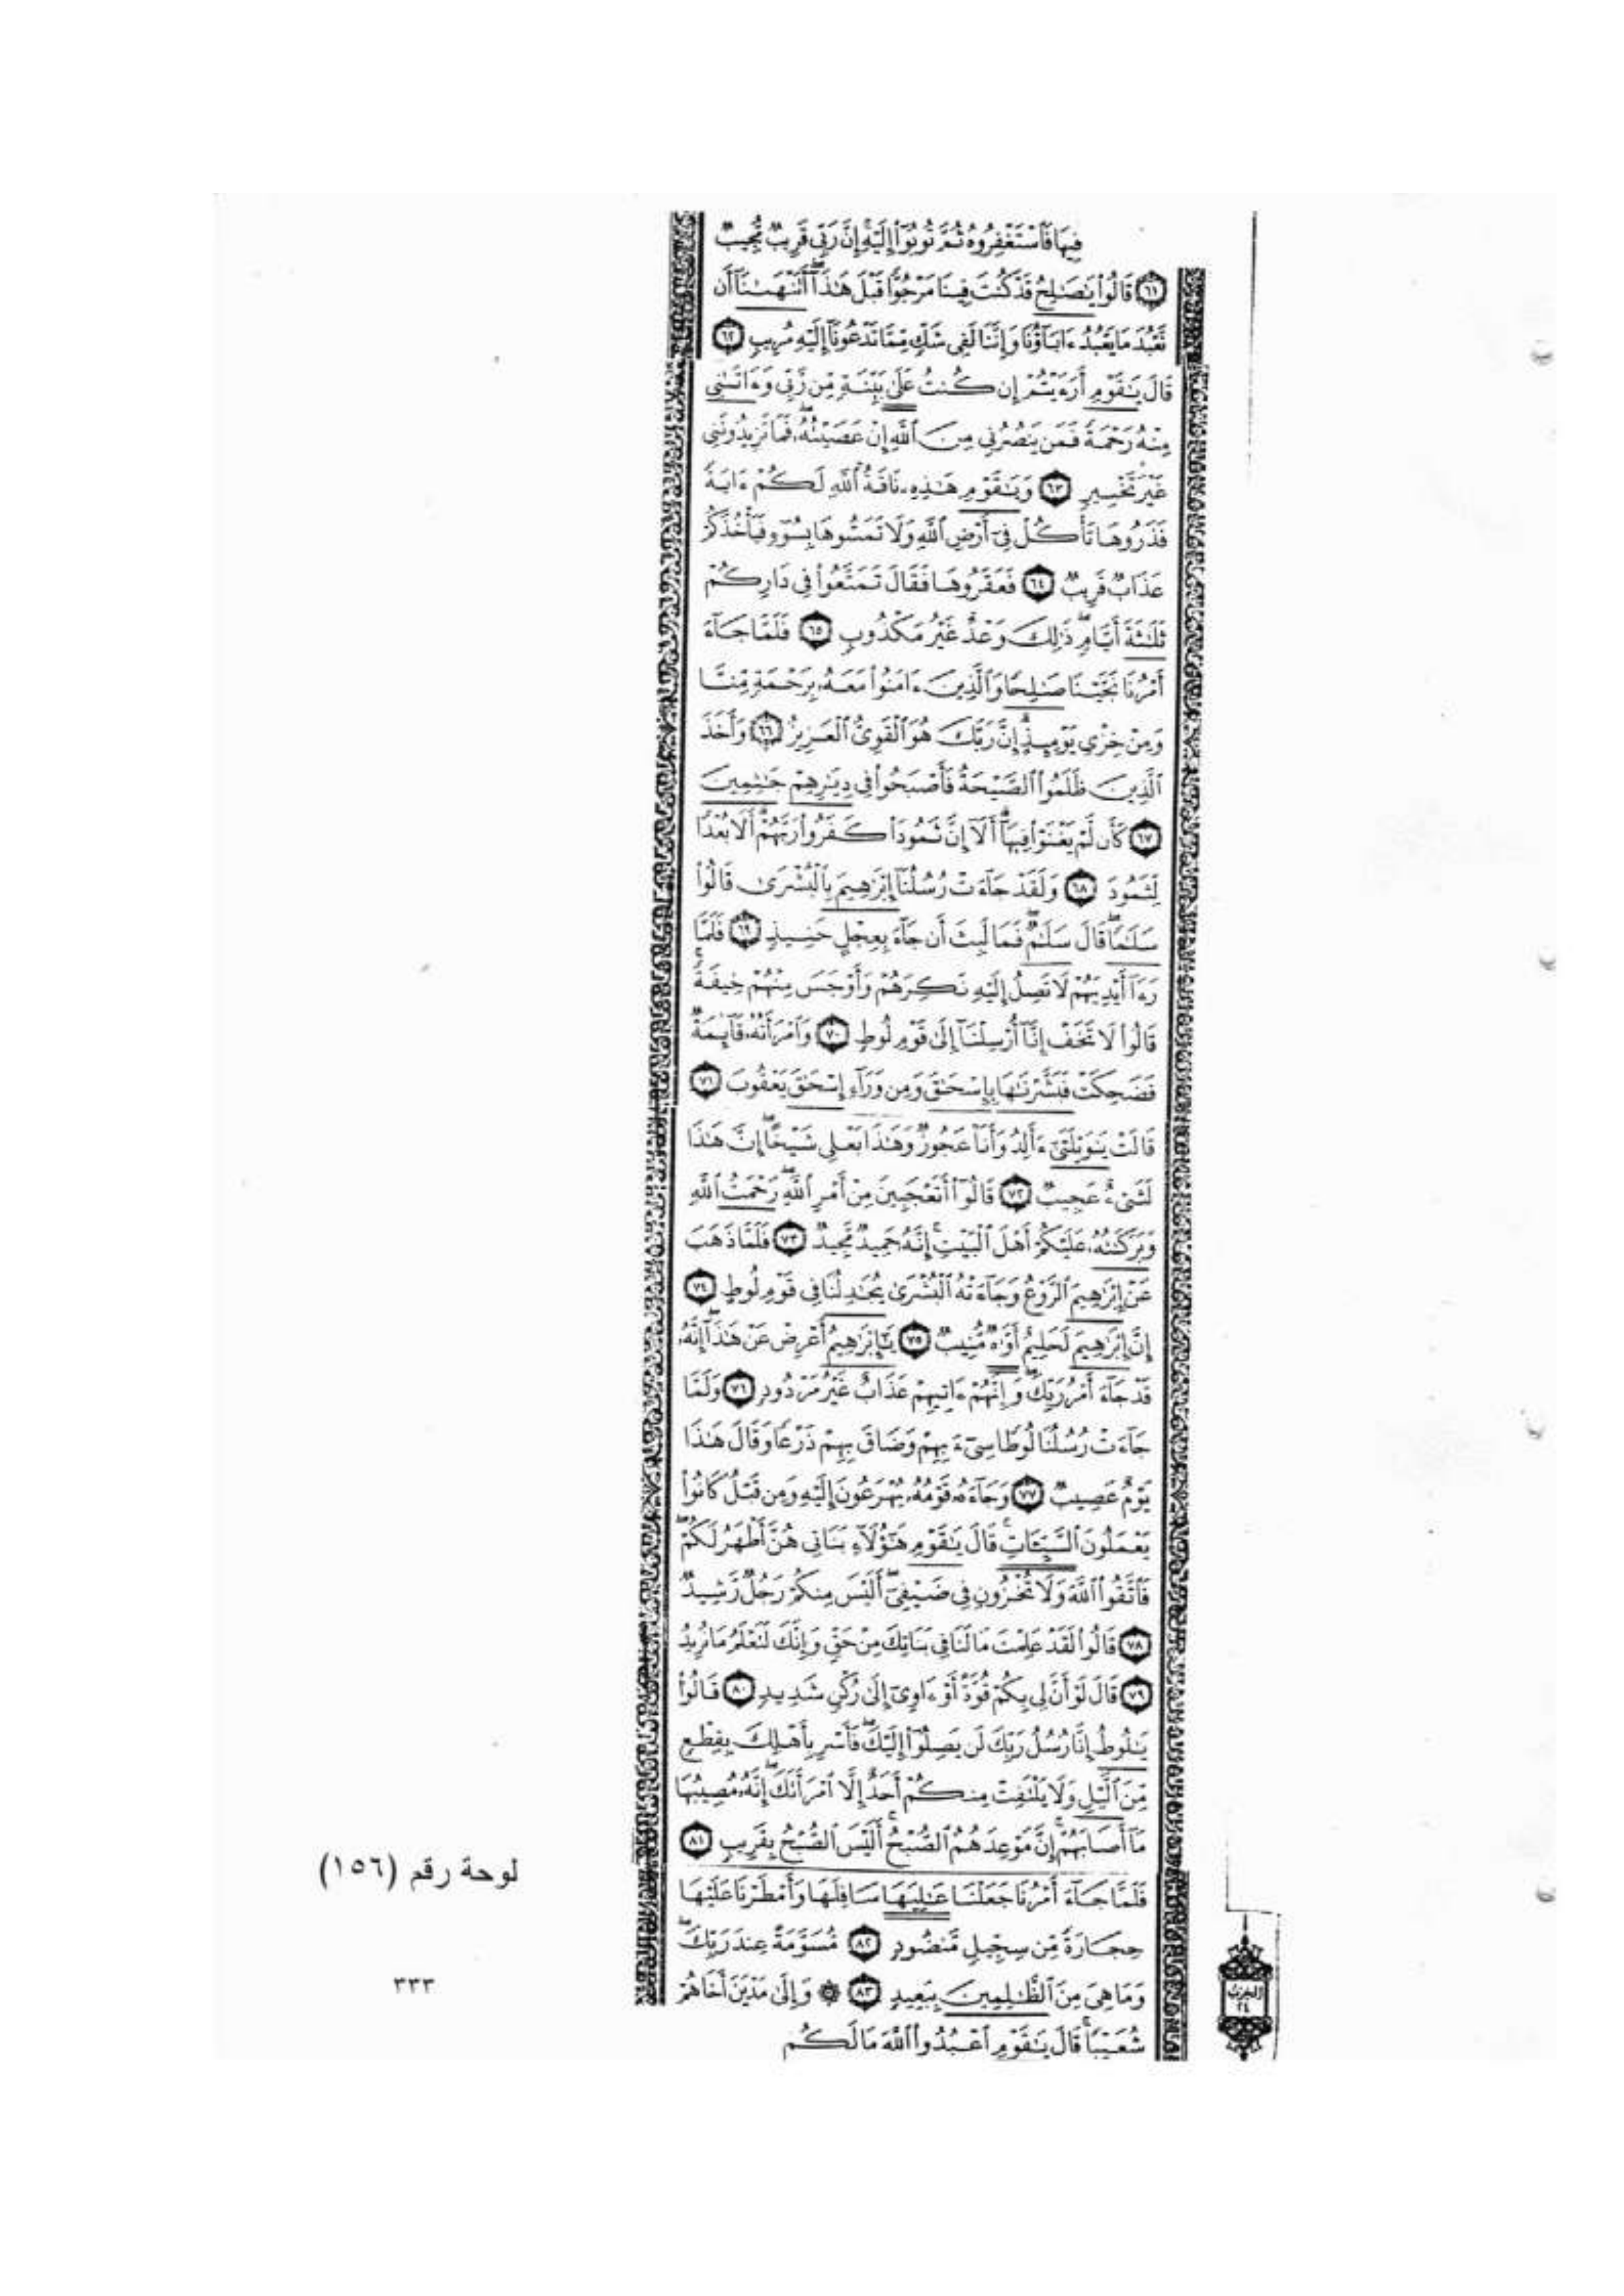 فِيهَا فَٱسْتَغْفِرُوهُ ثُمَّ تُوبُوٓا۟ إِلَيْهِ إِنَّ رَبِّى قَرِيبٌ مُّجِيبٌ
٦١ قَالُوا۟ يَٰصَٰلِحُ قَدْ كُنتَ فِينَا مَرْجُوًّا قَبْلَ هَٰذَآ أَتَنْهَىٰنَآ أَن
نَّعْبُدَ مَا يَعْبُدُ ءَابَآؤُنَا وَإِنَّنَا لَفِى شَكٍّ مِّمَّا تَدْعُونَآ إِلَيْهِ مُرِيبٍ ٦٢
قَالَ يَٰقَوْمِ أَرَءَيْتُمْ إِن كُنتُ عَلَىٰ بَيِّنَةٍ مِّن رَّبِّى وَءَاتَىٰنِى
مِنْهُ رَحْمَةً فَمَن يَنصُرُنِى مِنَ ٱللَّهِ إِنْ عَصَيْتُهُۥ فَمَا تَزِيدُونَنِى
غَيْرَ تَخْسِيرٍ ٦٣ وَيَٰقَوْمِ هَٰذِهِۦ نَاقَةُ ٱللَّهِ لَكُمْ ءَايَةً
فَذَرُوهَا تَأْكُلْ فِىٓ أَرْضِ ٱللَّهِ وَلَا تَمَسُّوهَا بِسُوٓءٍ فَيَأْخُذَكُمْ
عَذَابٌ قَرِيبٌ ٦٤ فَعَقَرُوهَا فَقَالَ تَمَتَّعُوا۟ فِى دَارِكُمْ
ثَلَٰثَةَ أَيَّامٍ ذَٰلِكَ وَعْدٌ غَيْرُ مَكْذُوبٍ ٦٥ فَلَمَّا جَآءَ
أَمْرُنَا نَجَّيْنَا صَٰلِحًا وَٱلَّذِينَ ءَامَنُوا۟ مَعَهُۥ بِرَحْمَةٍ مِّنَّا
وَمِنْ خِزْىِ يَوْمِئِذٍ إِنَّ رَبَّكَ هُوَ ٱلْقَوِىُّ ٱلْعَزِيزُ ٦٦ وَأَخَذَ
ٱلَّذِينَ ظَلَمُوا۟ ٱلصَّيْحَةُ فَأَصْبَحُوا۟ فِى دِيَٰرِهِمْ جَٰثِمِينَ
٦٧ كَأَن لَّمْ يَغْنَوْا۟ فِيهَآ أَلَآ إِنَّ ثَمُودَا۟ كَفَرُوا۟ رَبَّهُمْ أَلَا بُعْدًا
لِّثَمُودَ ٦٨ وَلَقَدْ جَآءَتْ رُسُلُنَآ إِبْرَٰهِيمَ بِٱلْبُشْرَىٰ قَالُوا۟
سَلَٰمًا قَالَ سَلَٰمٌ فَمَا لَبِثَ أَن جَآءَ بِعِجْلٍ حَنِيذٍ ٦٩ فَلَمَّا
رَءَآ أَيْدِيَهُمْ لَا تَصِلُ إِلَيْهِ نَكِرَهُمْ وَأَوْجَسَ مِنْهُمْ خِيفَةً
قَالُوا۟ لَا تَخَفْ إِنَّآ أُرْسِلْنَآ إِلَىٰ قَوْمِ لُوطٍ ٧٠ وَٱمْرَأَتُهُۥ قَآئِمَةٌ
فَضَحِكَتْ فَبَشَّرْنَٰهَا بِإِسْحَٰقَ وَمِن وَرَآءِ إِسْحَٰقَ يَعْقُوبَ ٧١
قَالَتْ يَٰوَيْلَتَىٰٓ ءَأَلِدُ وَأَنَا۠ عَجُوزٌ وَهَٰذَا بَعْلِى شَيْخًا إِنَّ هَٰذَا
لَشَىْءٌ عَجِيبٌ ٧٢ قَالُوٓا۟ أَتَعْجَبِينَ مِنْ أَمْرِ ٱللَّهِ رَحْمَتُ ٱللَّهِ
وَبَرَكَٰتُهُۥ عَلَيْكُمْ أَهْلَ ٱلْبَيْتِ إِنَّهُۥ حَمِيدٌ مَّجِيدٌ ٧٣ فَلَمَّا ذَهَبَ
عَنْ إِبْرَٰهِيمَ ٱلرَّوْعُ وَجَآءَتْهُ ٱلْبُشْرَىٰ يُجَٰدِلُنَا فِى قَوْمِ لُوطٍ ٧٤
إِنَّ إِبْرَٰهِيمَ لَحَلِيمٌ أَوَّٰهٌ مُّنِيبٌ ٧٥ يَٰٓإِبْرَٰهِيمُ أَعْرِضْ عَنْ هَٰذَآ إِنَّهُۥ
قَدْ جَآءَ أَمْرُ رَبِّكَ وَإِنَّهُمْ ءَاتِيهِمْ عَذَابٌ غَيْرُ مَرْدُودٍ ٧٦ وَلَمَّا
جَآءَتْ رُسُلُنَا لُوطًا سِىٓءَ بِهِمْ وَضَاقَ بِهِمْ ذَرْعًا وَقَالَ هَٰذَا
يَوْمٌ عَصِيبٌ ٧٧ وَجَآءَهُۥ قَوْمُهُۥ يُهْرَعُونَ إِلَيْهِ وَمِن قَبْلُ كَانُوا۟
يَعْمَلُونَ ٱلسَّيِّـَٔاتِ قَالَ يَٰقَوْمِ هَٰٓؤُلَآءِ بَنَاتِى هُنَّ أَطْهَرُ لَكُمْ
فَٱتَّقُوا۟ ٱللَّهَ وَلَا تُخْزُونِ فِى ضَيْفِىٓ أَلَيْسَ مِنكُمْ رَجُلٌ رَّشِيدٌ
٧٨ قَالُوا۟ لَقَدْ عَلِمْتَ مَا لَنَا فِى بَنَاتِكَ مِنْ حَقٍّ وَإِنَّكَ لَتَعْلَمُ مَا نُرِيدُ
٧٩ قَالَ لَوْ أَنَّ لِى بِكُمْ قُوَّةً أَوْ ءَاوِىٓ إِلَىٰ رُكْنٍ شَدِيدٍ ٨٠ قَالُوا۟
يَٰلُوطُ إِنَّا رُسُلُ رَبِّكَ لَن يَصِلُوٓا۟ إِلَيْكَ فَأَسْرِ بِأَهْلِكَ بِقِطْعٍ
مِّنَ ٱلَّيْلِ وَلَا يَلْتَفِتْ مِنكُمْ أَحَدٌ إِلَّا ٱمْرَأَتَكَ إِنَّهُۥ مُصِيبُهَا
مَآ أَصَابَهُمْ إِنَّ مَوْعِدَهُمُ ٱلصُّبْحُ أَلَيْسَ ٱلصُّبْحُ بِقَرِيبٍ ٨١
فَلَمَّا جَآءَ أَمْرُنَا جَعَلْنَا عَٰلِيَهَا سَافِلَهَا وَأَمْطَرْنَا عَلَيْهَا
حِجَارَةً مِّن سِجِّيلٍ مَّنضُودٍ ٨٢ مُّسَوَّمَةً عِندَ رَبِّكَ
وَمَا هِىَ مِنَ ٱلظَّٰلِمِينَ بِبَعِيدٍ ٨٣ ۞ وَإِلَىٰ مَدْيَنَ أَخَاهُمْ
شُعَيْبًا قَالَ يَٰقَوْمِ ٱعْبُدُوا۟ ٱللَّهَ مَا لَكُم
الحزب
٢٤
لوحة رقم (١٥٦)
٣٣٣